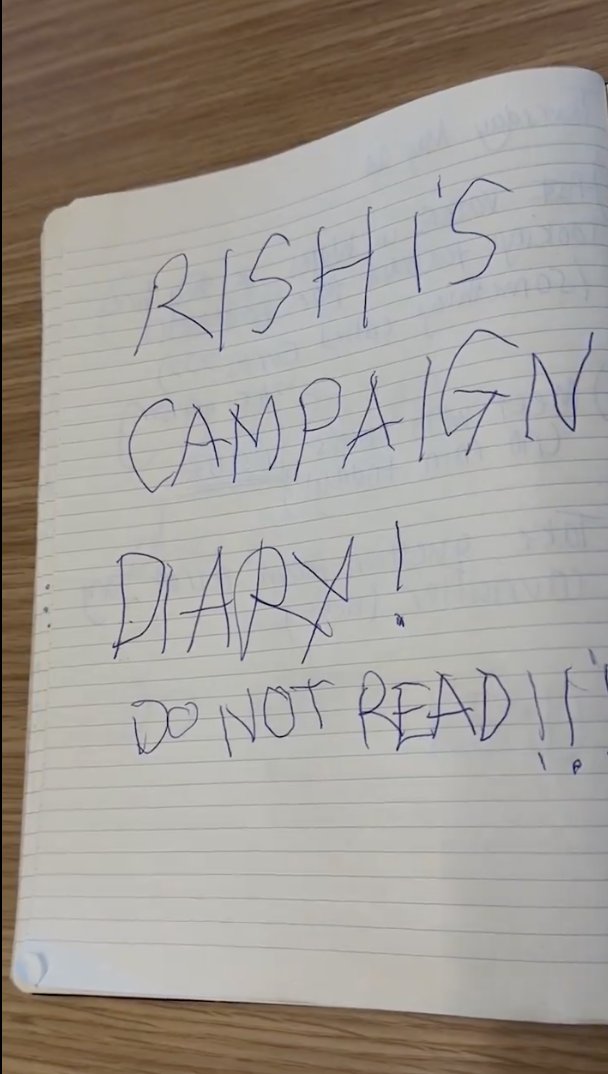 RISHI'S
CAMPAIGN
DIARY!
DO NOT READ!!!